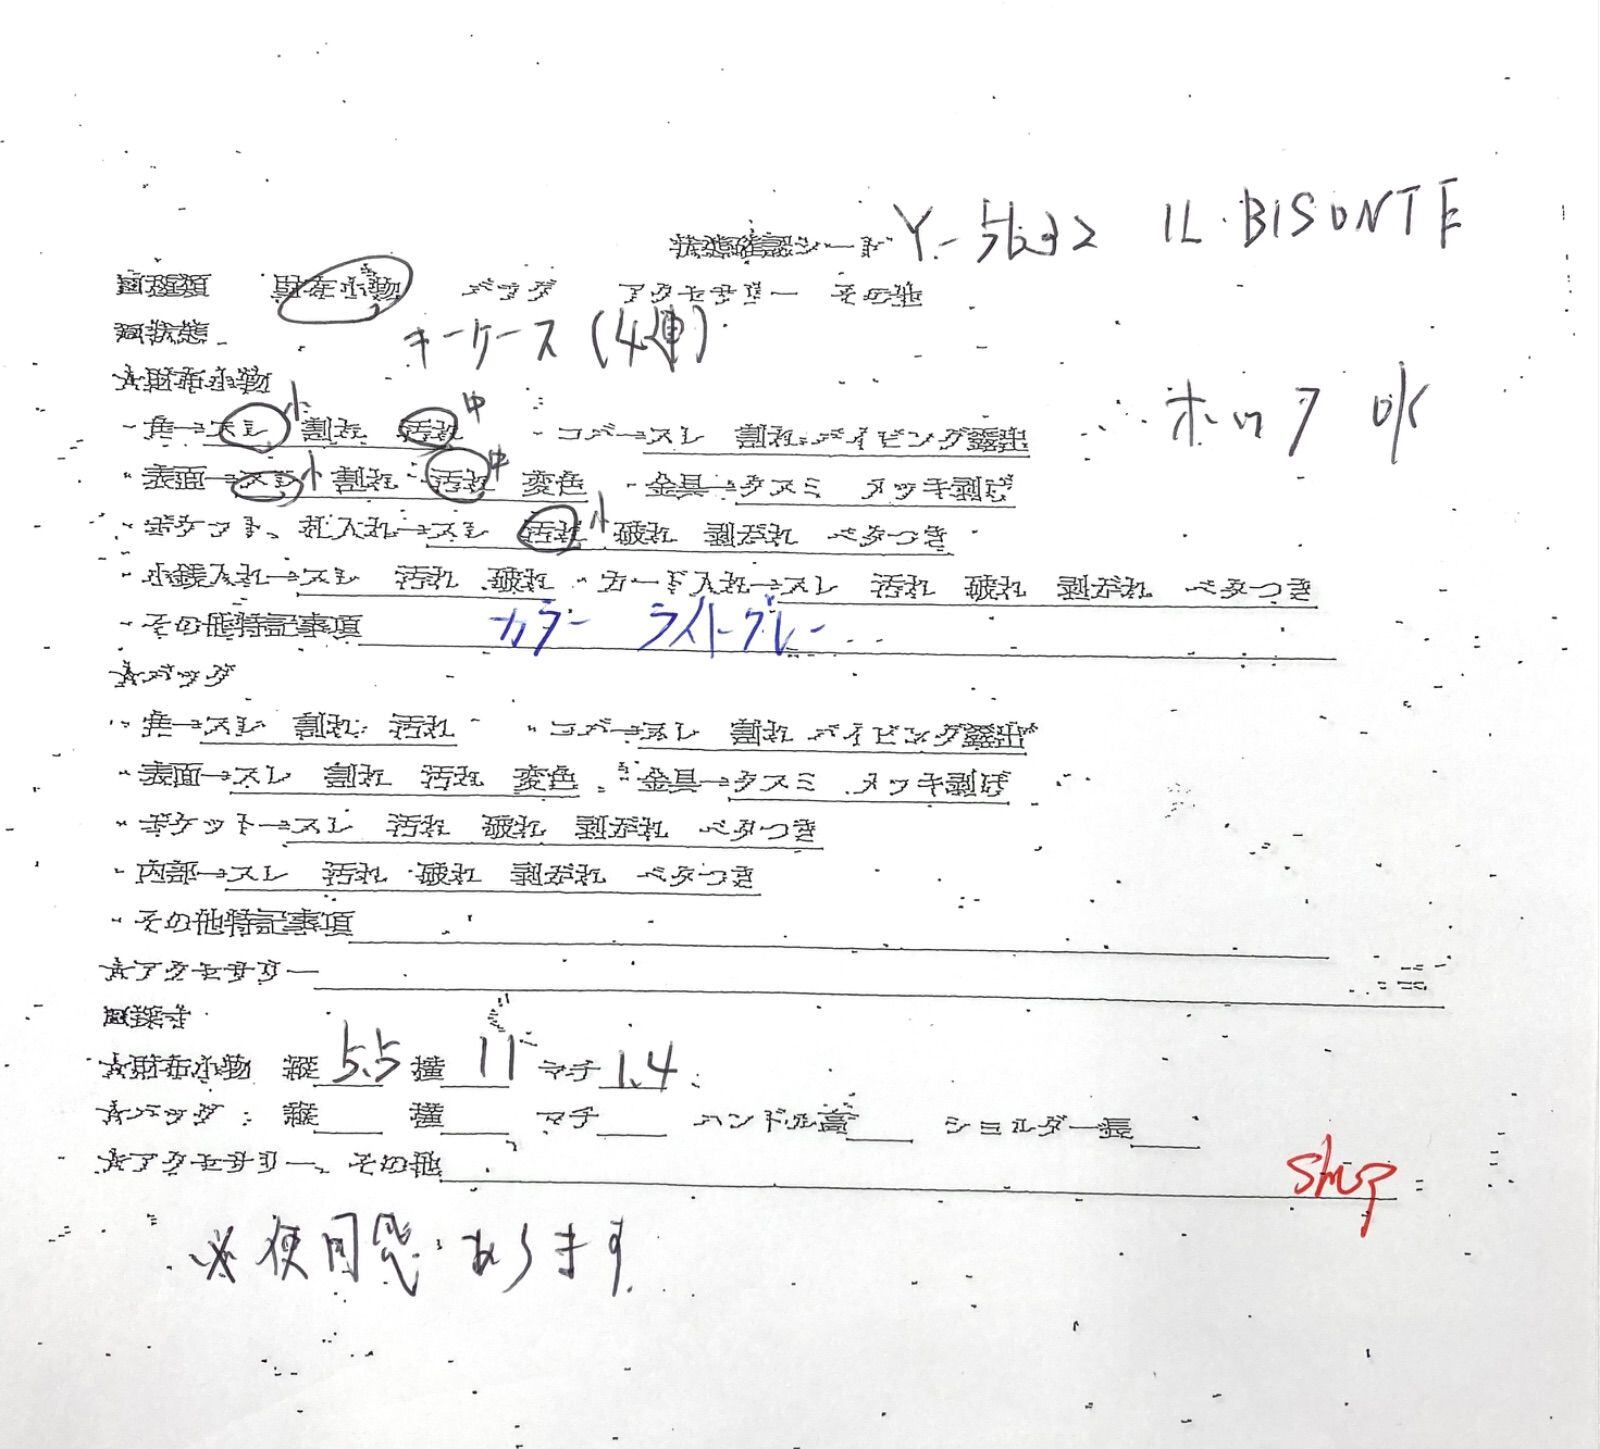 状態確認シート Y-5632 IL BISONTE
□種類 財布小物 バッグ アクセサリー その他
□状態 キーケース(4連)
★財布小物
ホック OK
・角→スレ小 割れ 汚れ中 ・コバ→スレ 割れ パイピング露出
・表面→スレ小 割れ 汚れ中 変色 ・金具→クスミ メッキ剥げ
・ポケット、札入れ→スレ 汚れ小 破れ 剥がれ ベタつき
・小銭入れ→スレ 汚れ 破れ ・カード入れ→スレ 汚れ 破れ 剥がれ ベタつき
・その他特記事項 カラー ライトグレー
★バッグ
・角→スレ 割れ 汚れ ・コバ→スレ 割れ パイピング露出
・表面→スレ 割れ 汚れ 変色 ・金具→クスミ メッキ剥げ
・ポケット→スレ 汚れ 破れ 剥がれ ベタつき
・内部→スレ 汚れ 破れ 剥がれ ベタつき
・その他特記事項
★アクセサリー
□採寸
★財布小物 縦 5.5 横 11 マチ 1.4
★バッグ 縦 横 マチ ハンドル高 ショルダー長
★アクセサリー、その他
※使用感あります